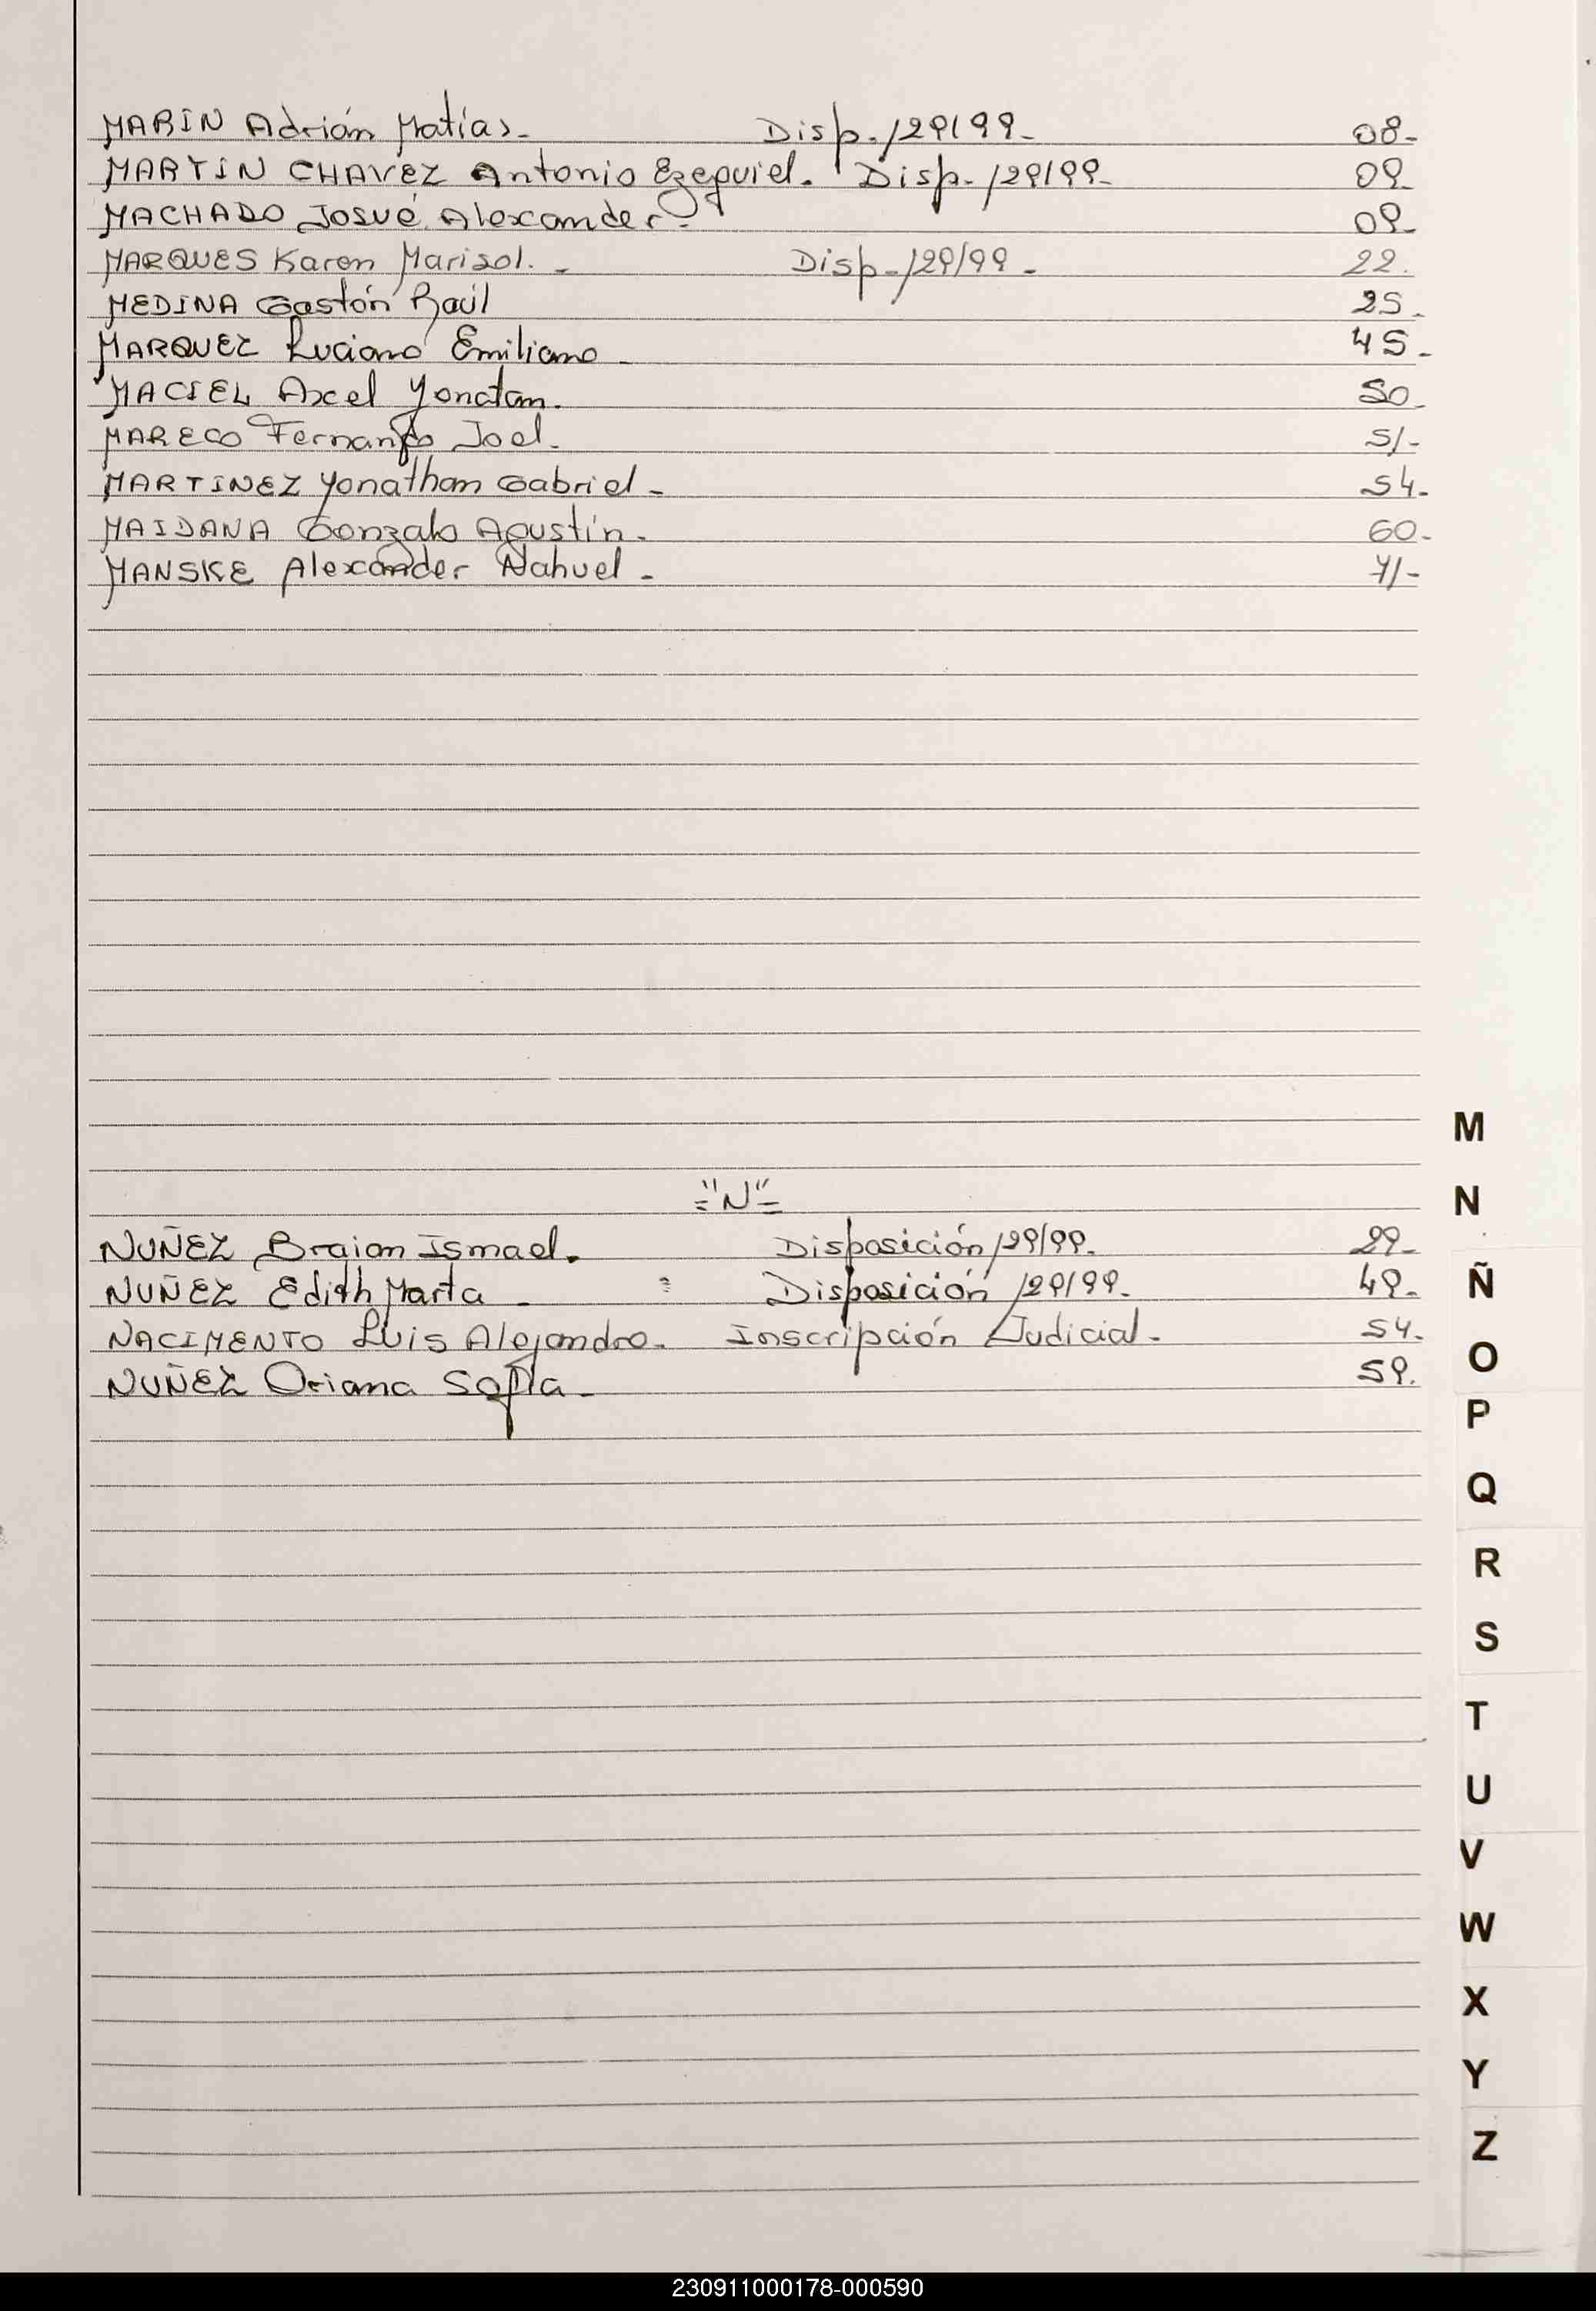 MARIN Adrián Matías- Disp-129/99- 08-
MARTIN CHAVEZ Antonio Ezequiel. Disp-129/99- 09-
MACHADO Josué Alexander- 09-
MARQUES Karen Marisol.- Disp-129/99- 22.
MEDINA Gastón Raúl 25-
MARQUEZ Luciano Emiliano- 45-
MACIEL Axel Yonatan- 50-
MARECO Fernando Joel- 51-
MARTINEZ Yonathan Gabriel- 54-
MAIDANA Gonzalo Agustín- 60-
MANSKE Alexander Nahuel- 71-
M
="N"=
N
NUÑEZ Braian Ismael. Disposición 129/99- 29-
NUÑEZ Edith Marta- Disposición 129/99- 49-
Ñ
NACIMENTO Luis Alejandro- Inscripción Judicial- 54-
NUÑEZ Oriana Sofía- 59-
O
P
Q
R
S
T
U
V
W
X
Y
Z
230911000178-000590